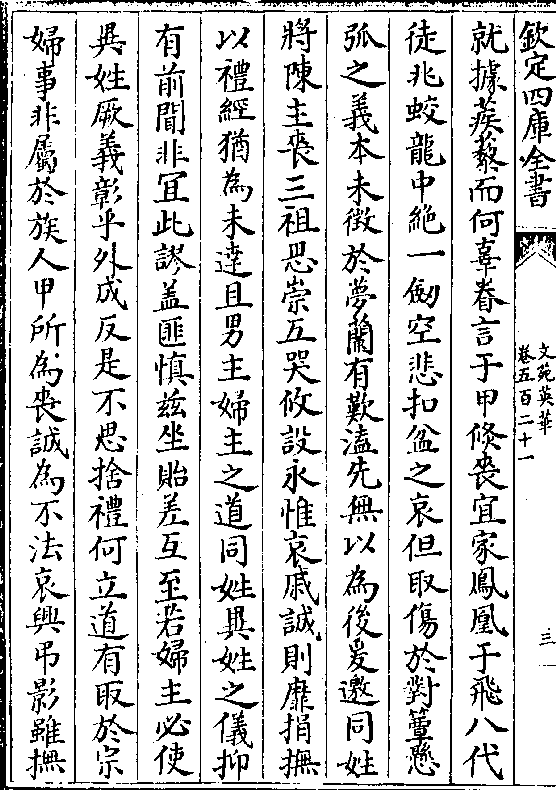 欽定四庫全書
文苑英華
卷五百二十一
三
就據蒺藜而何辜眷言于甲倏喪宜家鳳凰于飛八代
徒兆蛟龍中絕一劒空悲扣盆之哀但取傷於對簟懸
弧之義本未徵於夢蘭有歎溘先無以為後爰邀同姓
將陳主喪三祖思崇互哭攸設永惟哀戚誠則靡捐撫
以禮經猶為未達且男主婦主之道同姓異姓之儀抑
有前聞非冝此謬盖匪慎兹坐貽差互至若婦主必使
異姓厥義彰乎外成反是不思捨禮何立道有取於宗
婦事非屬於族人甲所為喪誠為不法哀興弔影雖撫